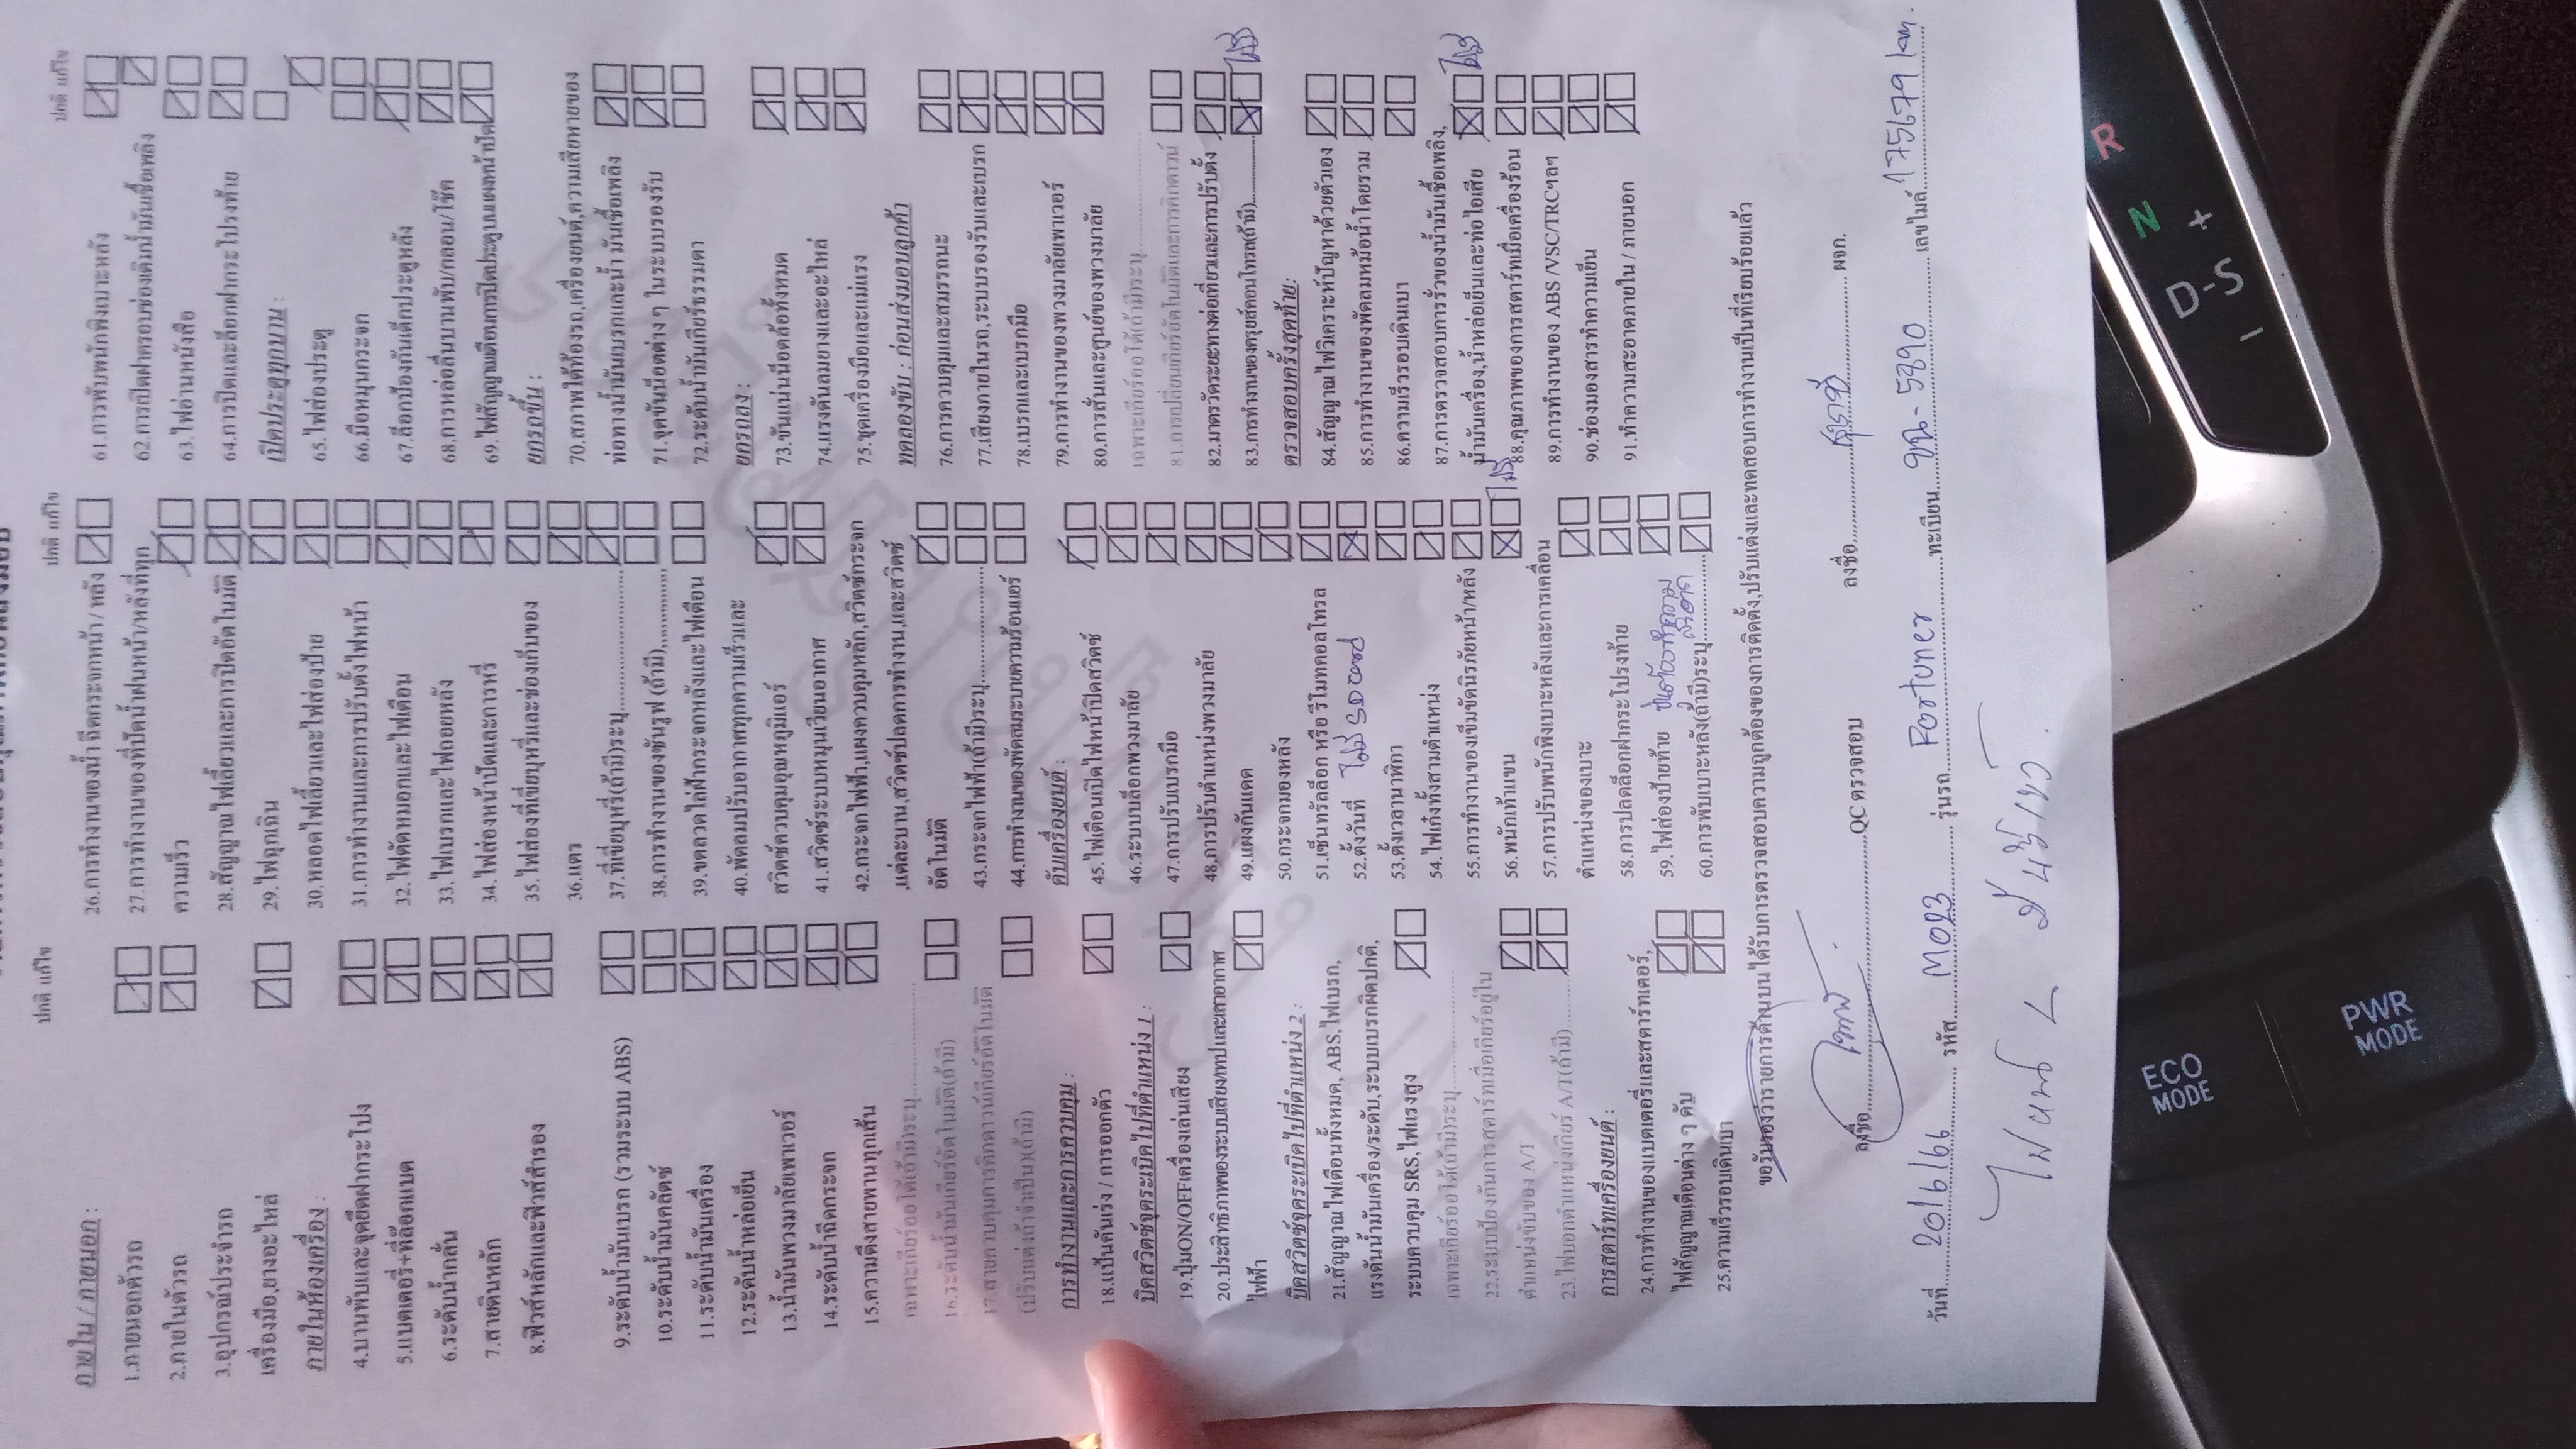 ปกติ แก้ไข
ภายใน / ภายนอก :
1.ภายนอกตัวรถ
2.ภายในตัวรถ
3.อุปกรณ์ประจำรถ
เครื่องมือ,ยางอะไหล่
ภายในห้องเครื่อง :
4.บานพับและจุดยึดฝากระโปง
5.แบตเตอรี่+ที่ล๊อกแบต
6.ระดับน้ำกลั่น
7.สายดินหลัก
8.ฟิวส์หลักและฟิวส์สำรอง
9.ระดับน้ำมันเบรก (รวมระบบ ABS)
10.ระดับน้ำมันคลัตช์
11.ระดับน้ำมันเครื่อง
12.ระดับน้ำหล่อเย็น
13.น้ำมันพวงมาลัยเพาเวอร์
14.ระดับน้ำฉีดกระจก
15.ความตึงสายพานทุกเส้น
เฉพาะเกียร์ออโต้(ถ้ามี)ระบุ
16.ระดับน้ำมันเกียร์อัตโนมัติ(ถ้ามี)
17.สายควบคุมการคิกดาวน์เกียร์อัตโนมัติ
(ปรับแต่งถ้าจำเป็น)(ถ้ามี)
การทำงานและการควบคุม :
18.แป้นคันเร่ง / การออกตัว
บิดสวิตช์จุดระเบิดไปที่ตำแหน่ง 1 :
19.ปุ่มON/OFFเครื่องเล่นเสียง
20.ประสิทธิภาพของระบบเสียง/เทป และเสาอากาศ
ไฟฟ้า
บิดสวิตช์จุดระเบิดไปที่ตำแหน่ง 2 :
21.สัญญาณไฟเตือนทั้งหมด, ABS, ไฟเบรก,
แรงดันน้ำมันเครื่อง/ระดับ,ระบบเบรกผิดปกติ,
ระบบควบคุม SRS,ไฟแรงสูง
เฉพาะเกียร์ออโต้(ถ้ามี)ระบุ
22.ระบบป้องกันการสตาร์ทเมื่อเกียร์อยู่ใน
ตำแหน่งขับของ A/T
23.ไฟบอกตำแหน่งเกียร์ A/T(ถ้ามี)
การสตาร์ทเครื่องยนต์ :
24.การทำงานของแบตเตอรี่และสตาร์ทเตอร์,
ไฟสัญญาณเตือนต่าง ๆ ดับ
25.ความเร็วรอบเดินเบา
ปกติ แก้ไข
26.การทำงานของน้ำฉีดกระจกหน้า / หลัง
27.การทำงานของที่ปัดน้ำฝนหน้า/หลังที่ทุก
ความเร็ว
28.สัญญาณไฟเลี้ยวและการปิดอัตโนมัติ
29.ไฟฉุกเฉิน
30.หลอดไฟเลี้ยวและไฟส่องป้าย
31.การทำงานและการปรับตั้งไฟหน้า
32.ไฟตัดหมอกและไฟเตือน
33.ไฟเบรกและไฟถอยหลัง
34.ไฟส่องหน้าปัดและการหรี่
35.ไฟส่องที่เขี่ยบุหรี่และช่องเก็บของ
36.แตร
37.ที่เขี่ยบุหรี่(ถ้ามี)ระบุ
38.การทำงานของซันรูฟ (ถ้ามี)
39.ขดลวดไล่ฝ้ากระจกหลังและไฟเตือน
40.พัดลมปรับอากาศทุกความเร็วและ
สวิตช์ควบคุมอุณหภูมิแอร์
41.สวิตช์ระบบหมุนเวียนอากาศ
42.กระจกไฟฟ้า,แผงควบคุมหลัก,สวิตช์กระจก
,แต่ละบาน,สวิตช์ปลดการทำงาน,และสวิตช์
อัตโนมัติ
43.กระจกไฟฟ้า(ถ้ามี)ระบุ
44.การทำงานของพัดลมระบายความร้อนแอร์
ดับเครื่องยนต์ :
45.ไฟเตือนเปิดไฟหน้าปิดสวิตช์
46.ระบบล็อกพวงมาลัย
47.การปรับเบรกมือ
48.การปรับตำแหน่งพวงมาลัย
49.แผงกันแดด
50.กระจกมองหลัง
51.เซ็นทรัลล็อก หรือ รีโมทคอลโทรล
52.ตั้งวันที่ ไม่มี SD card
53.ตั้งเวลานาฬิกา
54.ไฟเก๋งทั้งสามตำแหน่ง
55.การทำงานของเข็มขัดนิรภัยหน้า/หลัง
56.พนักเท้าแขน ไม่มี
57.การปรับพนักพิงเบาะหลังและการเคลื่อน
ตำแหน่งของเบาะ
58.การปลดล็อกฝากระโปรงท้าย
59.ไฟส่องป้ายท้าย
60.การพับเบาะหลัง(ถ้ามี)ระบุ
ปกติ แก้ไข
61.การพับพนักพิงเบาะหลัง
62.การเปิดฝาครอบช่องเติมน้ำมันเชื้อเพลิง
63.ไฟอ่านหนังสือ
64.การปิดและล็อกฝากระโปรงท้าย
เปิดประตูทุกบาน :
65.ไฟส่องประตู
66.มือหมุนกระจก
67.ล็อกป้องกันเด็กประตูหลัง
68.การหล่อลื่นบานพับ/กลอน/โช๊ค
69.ไฟสัญญาณเตือนการปิดประตูบนแผงหน้าปัด
ยกรถขึ้น :
70.สภาพใต้ท้องรถ,เครื่องยนต์,ความเสียหายของ
ท่อทางน้ำมันเบรกและน้ำมันเชื้อเพลิง
71.จุดขันน๊อตต่าง ๆ ในระบบรองรับ
72.ระดับน้ำมันเกียร์ธรรมดา
ยกรถลง :
73.ขันแน่นน๊อตล้อทั้งหมด
74.แรงดันลมยางและอะไหล่
75.ชุดเครื่องมือและแม่แรง
ทดลองขับ : ก่อนส่งมอบลูกค้า
76.การควบคุมและสมรรถนะ
77.เสียงภายในรถ,ระบบรองรับและเบรก
78.เบรกและเบรกมือ
79.การทำงานของพวงมาลัยเพาเวอร์
80.การสั่นและศูนย์ของพวงมาลัย
เฉพาะเกียร์ออโต้(ถ้ามี)ระบุ
81.การเปลี่ยนเกียร์อัตโนมัติและการคิกดาวน์
82.มาตรวัดระยะทางต่อเที่ยวและการปรับตั้ง
83.การทำงานของครูยส์คอนโทรล(ถ้ามี) ไม่มี
ตรวจสอบครั้งสุดท้าย:
84.สัญญาณไฟวิเคราะห์ปัญหาด้วยตัวเอง
85.การทำงานของพัดลมหม้อน้ำโดยรวม
86.ความเร็วรอบเดินเบา
87.การตรวจสอบการรั่วของน้ำมันเชื้อเพลิง,
น้ำมันเครื่อง,น้ำหล่อเย็นและท่อไอเสีย ไม่มี
88.คุณภาพของการสตาร์ทเมื่อเครื่องร้อน
89.การทำงานของ ABS /VSC/TRCฯลฯ
90.ช่องมองสารทำความเย็น
91.ทำความสะอาดภายใน / ภายนอก
ขอรับรองว่ารายการด้านบนได้รับการตรวจสอบความถูกต้องของการติดตั้ง,ปรับแต่งและทดสอบการทำงานเป็นที่เรียบร้อยแล้ว
ลงชื่อ QC ตรวจสอบ ลงชื่อ ผจก.
วันที่ 20/6/66 รหัส M023 รุ่นรถ Fortuner ทะเบียน ขฉ-5390 เลขไมล์ 175679 km.
R
N
+
D-S
-
ECO MODE
PWR MODE